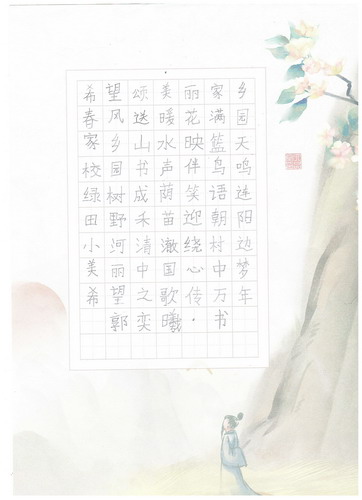 希望颂美丽家乡
春风送暖花满园
家乡山水映篮天
校园书声伴鸟鸣
绿树成荫笑语迷
田野禾苗迎朝阳
小河清澈绕村边
美丽中国心中梦
希望之歌传万年
郭奕曦·书